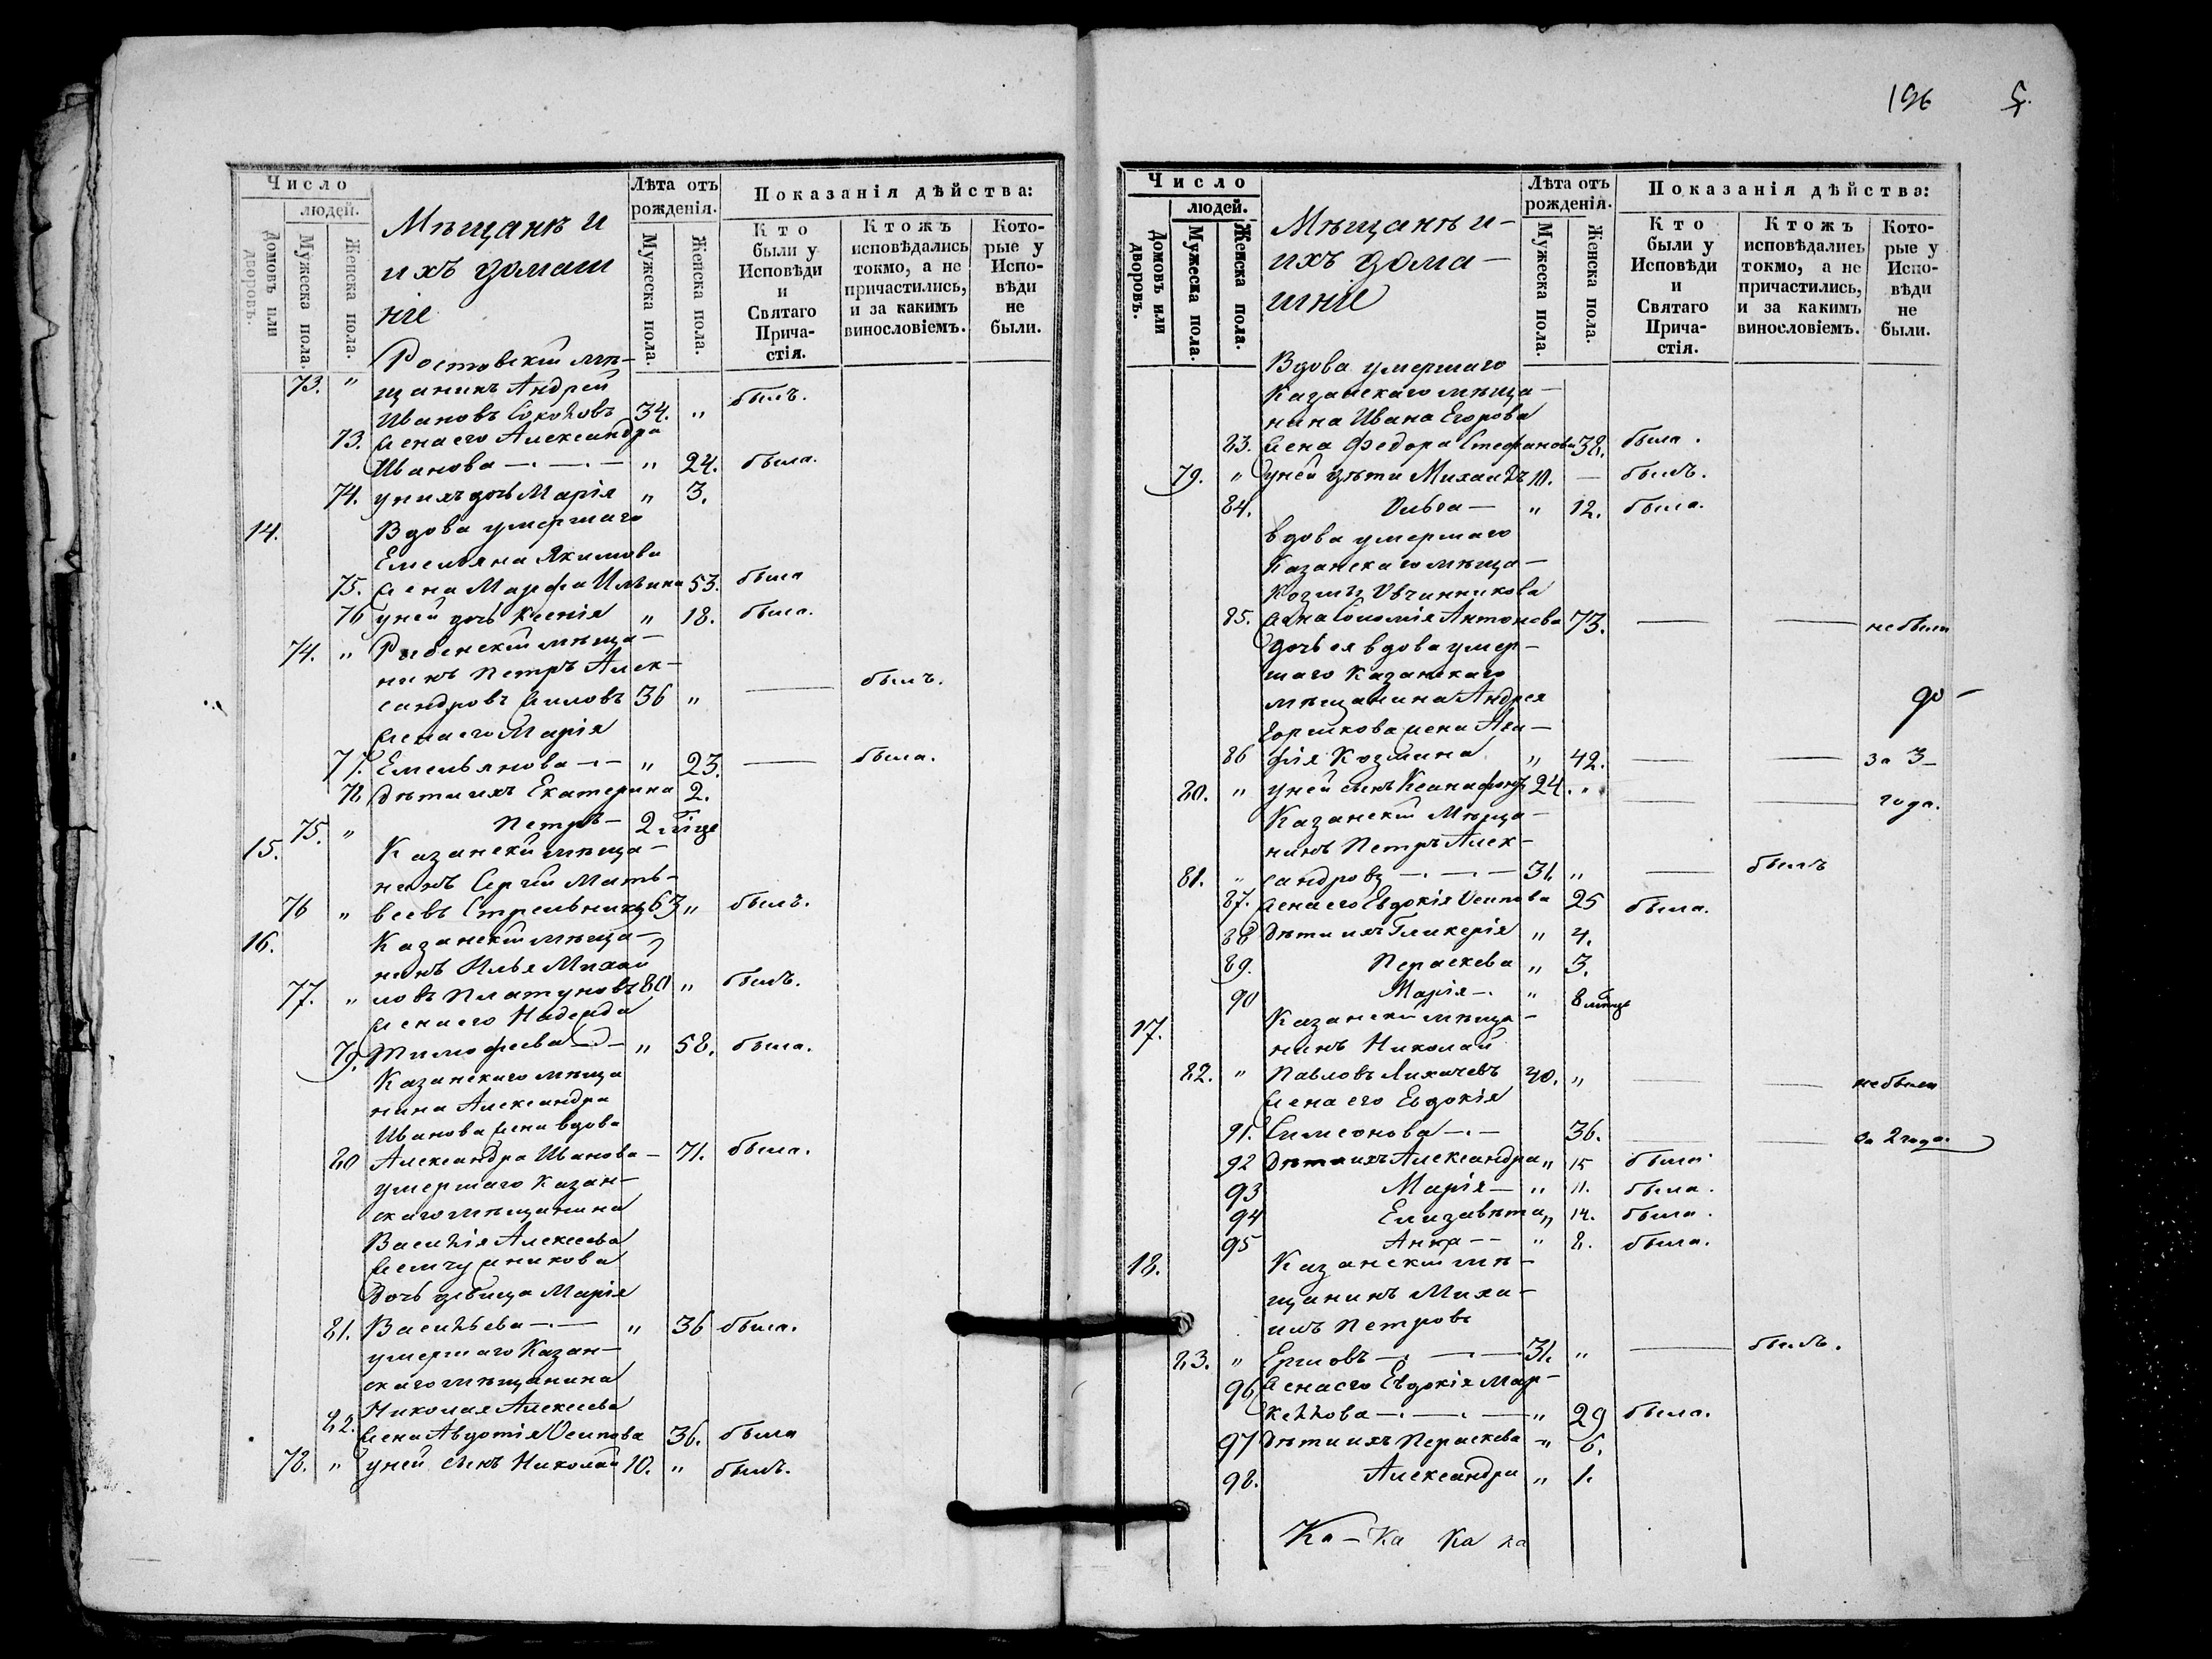 196 5.
Число
людей.
Домовъ или дворовъ.
Мужеска пола.
Женска пола.
Мѣщанѣ и
ихъ домаш
ніе
Лѣта отъ рожденія.
Мужеска пола.
Женска пола.
Показанія дѣйства:
Кто были у Исповѣди и Святаго Причастія.
Ктожъ исповѣдались токмо, а не причастились, и за какимъ винословіемъ.
Которые у Исповѣди не были.
Ростовскій мѣ-
73. " щанинъ Андрей
Ивановъ Соколовъ 34. " былъ.
73. Жена его Александра
Иванова — " 24. была.
74. у нихъ дочь Марія " 3.
14. Вдова умершаго
Емельяна Якимова
75. Жена Марфа Ильина 53. была
76 у ней дочь Ксенія " 18. была.
74. " Рыбенскій мѣща-
нинъ Петръ Алек-
сандровъ 36 " — былъ.
Жена его Марія
77. Емельянова — " 23. — была.
78 Дѣти ихъ Екатерина 2.
75. " Петръ — 2
15. Казанскій мѣща-
нинъ Сергій Матв-
76 " веевъ Стрельниковъ 63 " былъ.
16. Казанскій мѣща-
нинъ Илья Михай
77. " ловъ Платуновъ 80 " былъ.
Жена его Надежда
79. Тимофеева — " 58. была.
Казанскаго мѣща
нина Александра
Иванова жена вдова
80 Александра Иванова — 71. была.
умершаго Казан-
скаго мѣщанина
Василія Алексеева
Жемчужникова
Дочь девица Марія
81. Васильева — " 36 была.
умершаго Казан-
скаго мѣщанина
Николая Алексеева
82. Жена Авдотія Осипова 36. была
78. " у ней сынъ Николай 10. " былъ.
Число
людей.
Домовъ или дворовъ.
Мужеска пола.
Женска пола.
Мѣщанѣ и-
ихъ дома-
шніе
Лѣта отъ рожденія.
Мужеска пола.
Женска пола.
Показанія дѣйства:
Кто были у Исповѣди и Святаго Причастія.
Ктожъ исповѣдались токмо, а не причастились, и за какимъ винословіемъ.
Которые у Исповѣди не были.
Вдова умершаго
Казанскаго мѣща-
нина Ивана Егорова
83. Жена Федора Стефанова 38. была.
79. " у ней дѣти Михаилъ 10. — былъ.
84. Ольга — " 12. была.
вдова умершаго
Казанскаго мѣща-
Козмы Овчинникова
85. Жена Соломія Антонова 73. — — не были
Дочь ея вдова умер-
шаго Казанскаго
мѣщанина Андрея
Горшкова жена Ага-
86 фія Козмина " 42. — — за 3-
80. " у ней сынъ Ксенафонтъ 24. " — — года.
Казанскій Мѣща-
нинъ Петръ Алек-
81. " сандровъ — 31. " — былъ
87. Жена его Евдокія Осипова 25 была.
88 Дѣти ихъ Гликерія " 4.
89. Параскева " 3.
90 Марія — " 8 мѣсяц
17. Казанскій мѣща-
нинъ Николай
82. " Павловъ Лихачевъ 40. " — — не были
Жена его Евдокія
91. Симеонова — 36. — — за 2 года.
92 Дѣти ихъ Александра " 15 была
93 Марія — " 11. была.
94 Елизавѣта " 14. была.
95 Анна — " 8. была.
18. Казанскій мѣ-
щанинъ Миха-
илъ Петровъ
83. " Ершовъ — 31. " — былъ.
96 Жена его Евдокія Мар-
келлова — " 29 была.
97 Дѣти ихъ Параскева — " 6.
98. Александра " 1.
Ка - Ка Ка ка